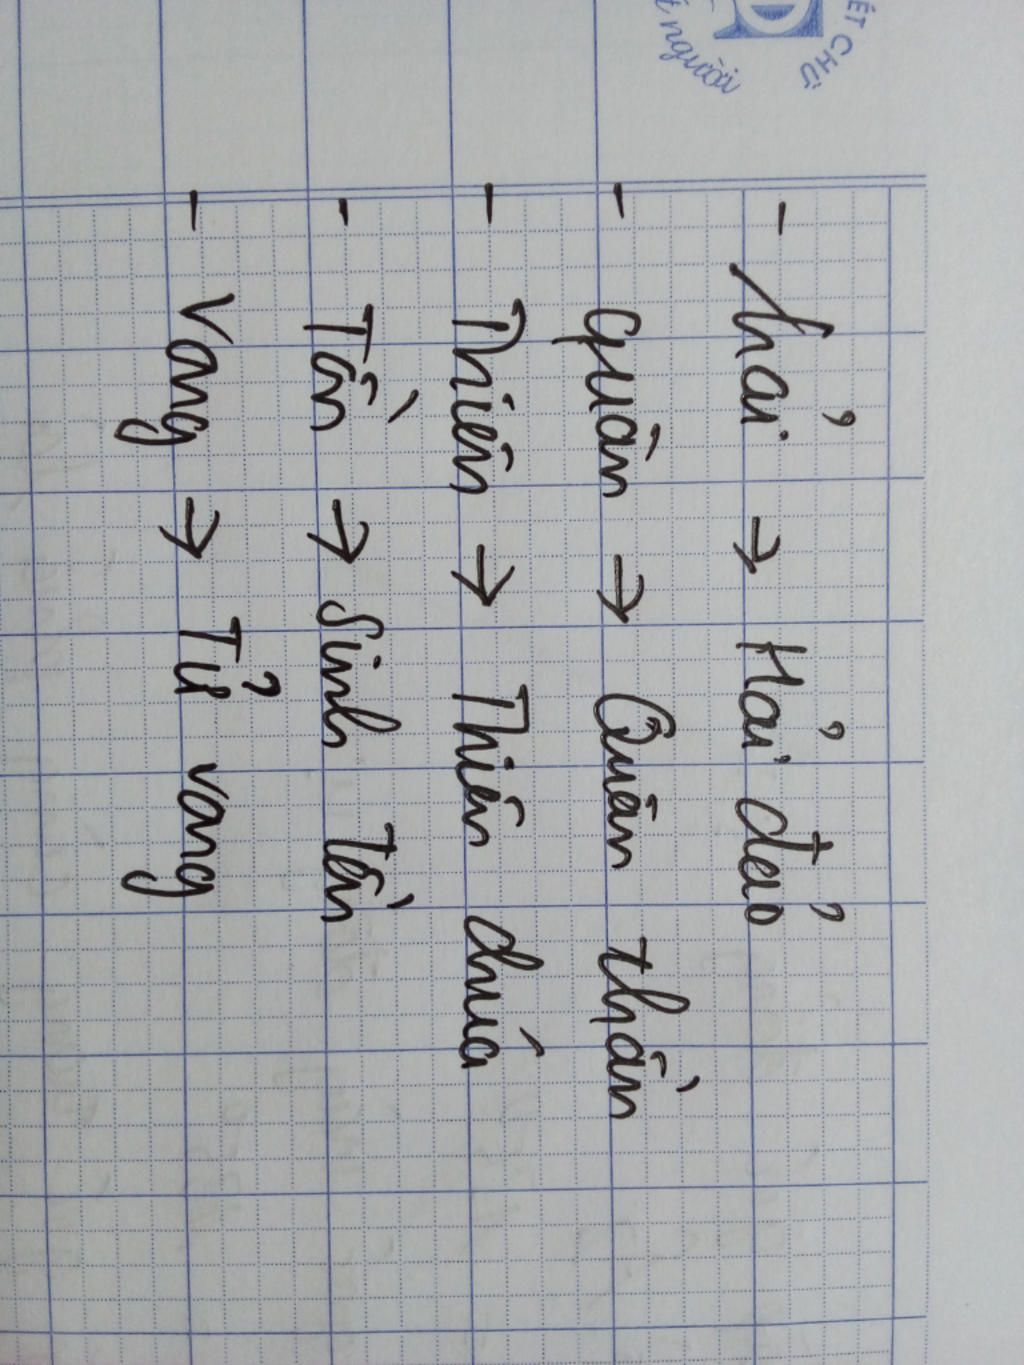 ẾT CHỮ
t người
- hải → Hải đảo
- quân → Quân thần
- Thiên → Thiên chúa
- Tồn → Sinh tồn
- Vong → Tử vong